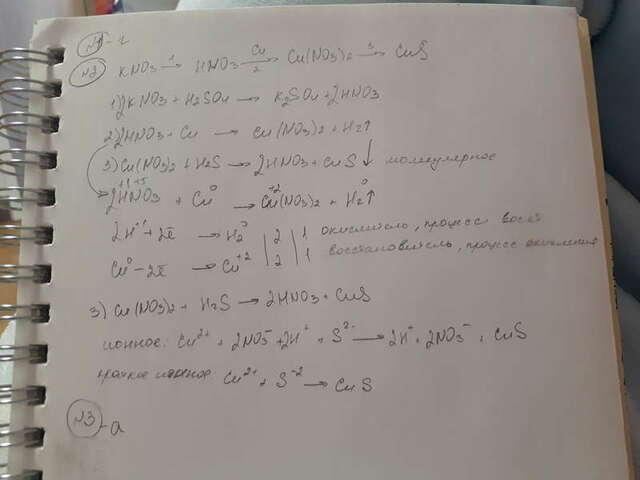 №1 - 2
№2 KNO3 →1 HNO3 →Cu 2 Cu(NO3)2 →3 CuS
1) 2KNO3 + H2SO4 → K2SO4 + 2HNO3
2) 2HNO3 + Cu → Cu(NO3)2 + H2↑
3) Cu(NO3)2 + H2S → 2HNO3 + CuS ↓ молекулярное
+1 +5 0 +2 0
2HNO3 + Cu → Cu(NO3)2 + H2↑
2H+1 + 2ē → H2 0 | 2 | 1 окислитель, процесс восст
Cu0 - 2ē → Cu+2 | 2 | 1 восстановитель, процесс окисления
3) Cu(NO3)2 + H2S → 2HNO3 + CuS
ионное: Cu2+ + 2NO3- + 2H+ + S2- → 2H+ + 2NO3- + CuS
краткое ионное Cu2+ + S-2 → CuS
№3 - а